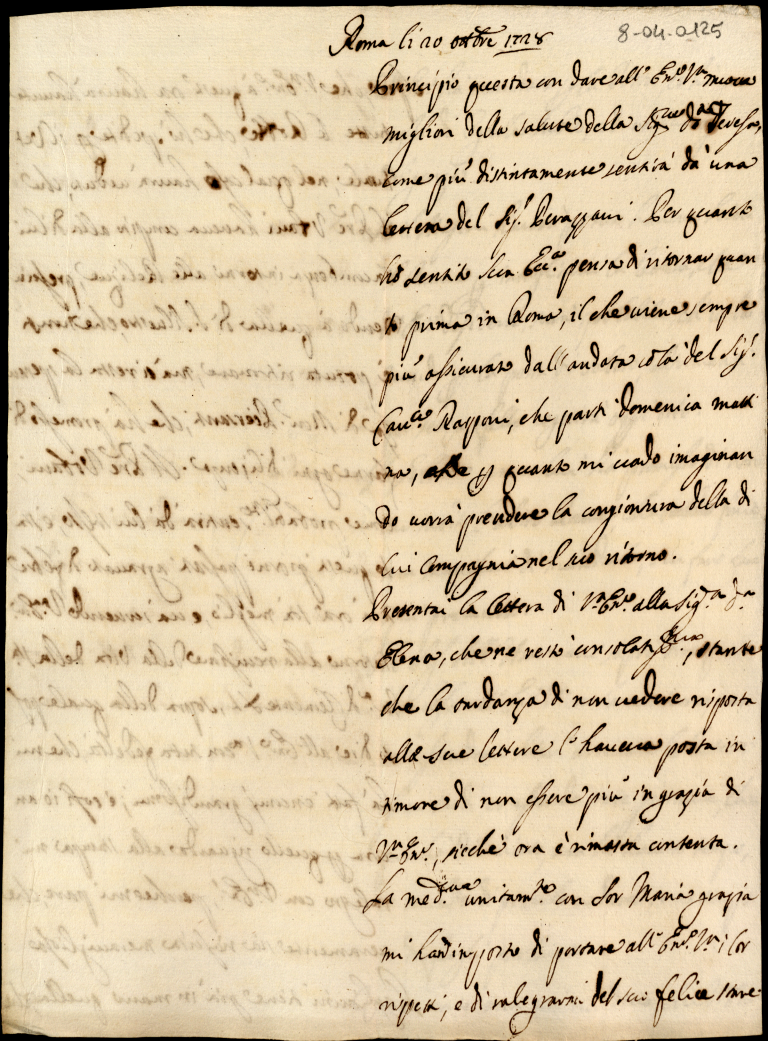 8-04-0125
Roma li 20 ottbre 1728
Principio questa con dare all' Emza Vra nuove
migliori della salute della Sigra Da Teresa,
come più distintamente sentirà da una
lettera del Sigr Perazzani. Per quanto
hò sentito Sua Ecca pensa di ritornar quan
to prima in Roma, il che viene sempre
più assicurato dall'andata colà del Sigr
Cavre Rasponi, che partì domenica matti
na, e quanto mi vado imaginan
do vorrà prendere la congiontura della di
lui Compagnia nel suo ritorno.
Presentai la lettera di Va Emza alla Siga Da
Elena, che ne restò consolatissima, stante
che la tardanza di non vedere risposta
alle sue lettere l'haveva posta in
timore di non essere più in grazia di
Va Emza, sicchè ora è rimasta contenta.
La medma unitamte con Sor Maria grazia
mi hanno imposto di portare all' Emza Vra i lor
rispetti, e di ralegrarmi del suo felice stare